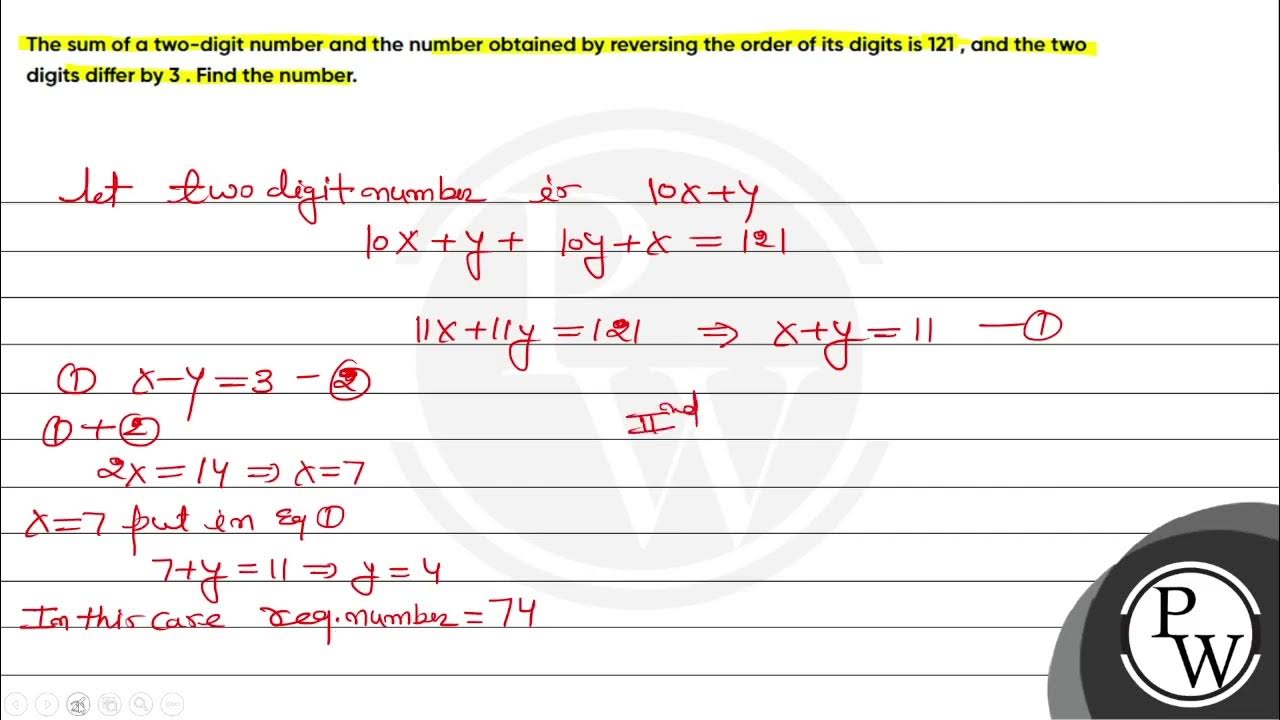 The sum of a two-digit number and the number obtained by reversing the order of its digits is 121 , and the two
digits differ by 3 . Find the number.
let two digit number is 10x+y
10x+y+ 10y+x = 121
11x+11y=121 ⇒ x+y=11 —①
① x-y=3 -②
IInd
①+②
2x=14 ⇒ x=7
x=7 put in Eq ①
7+y=11 ⇒ y=4
In this case req. number = 74
PW
PW